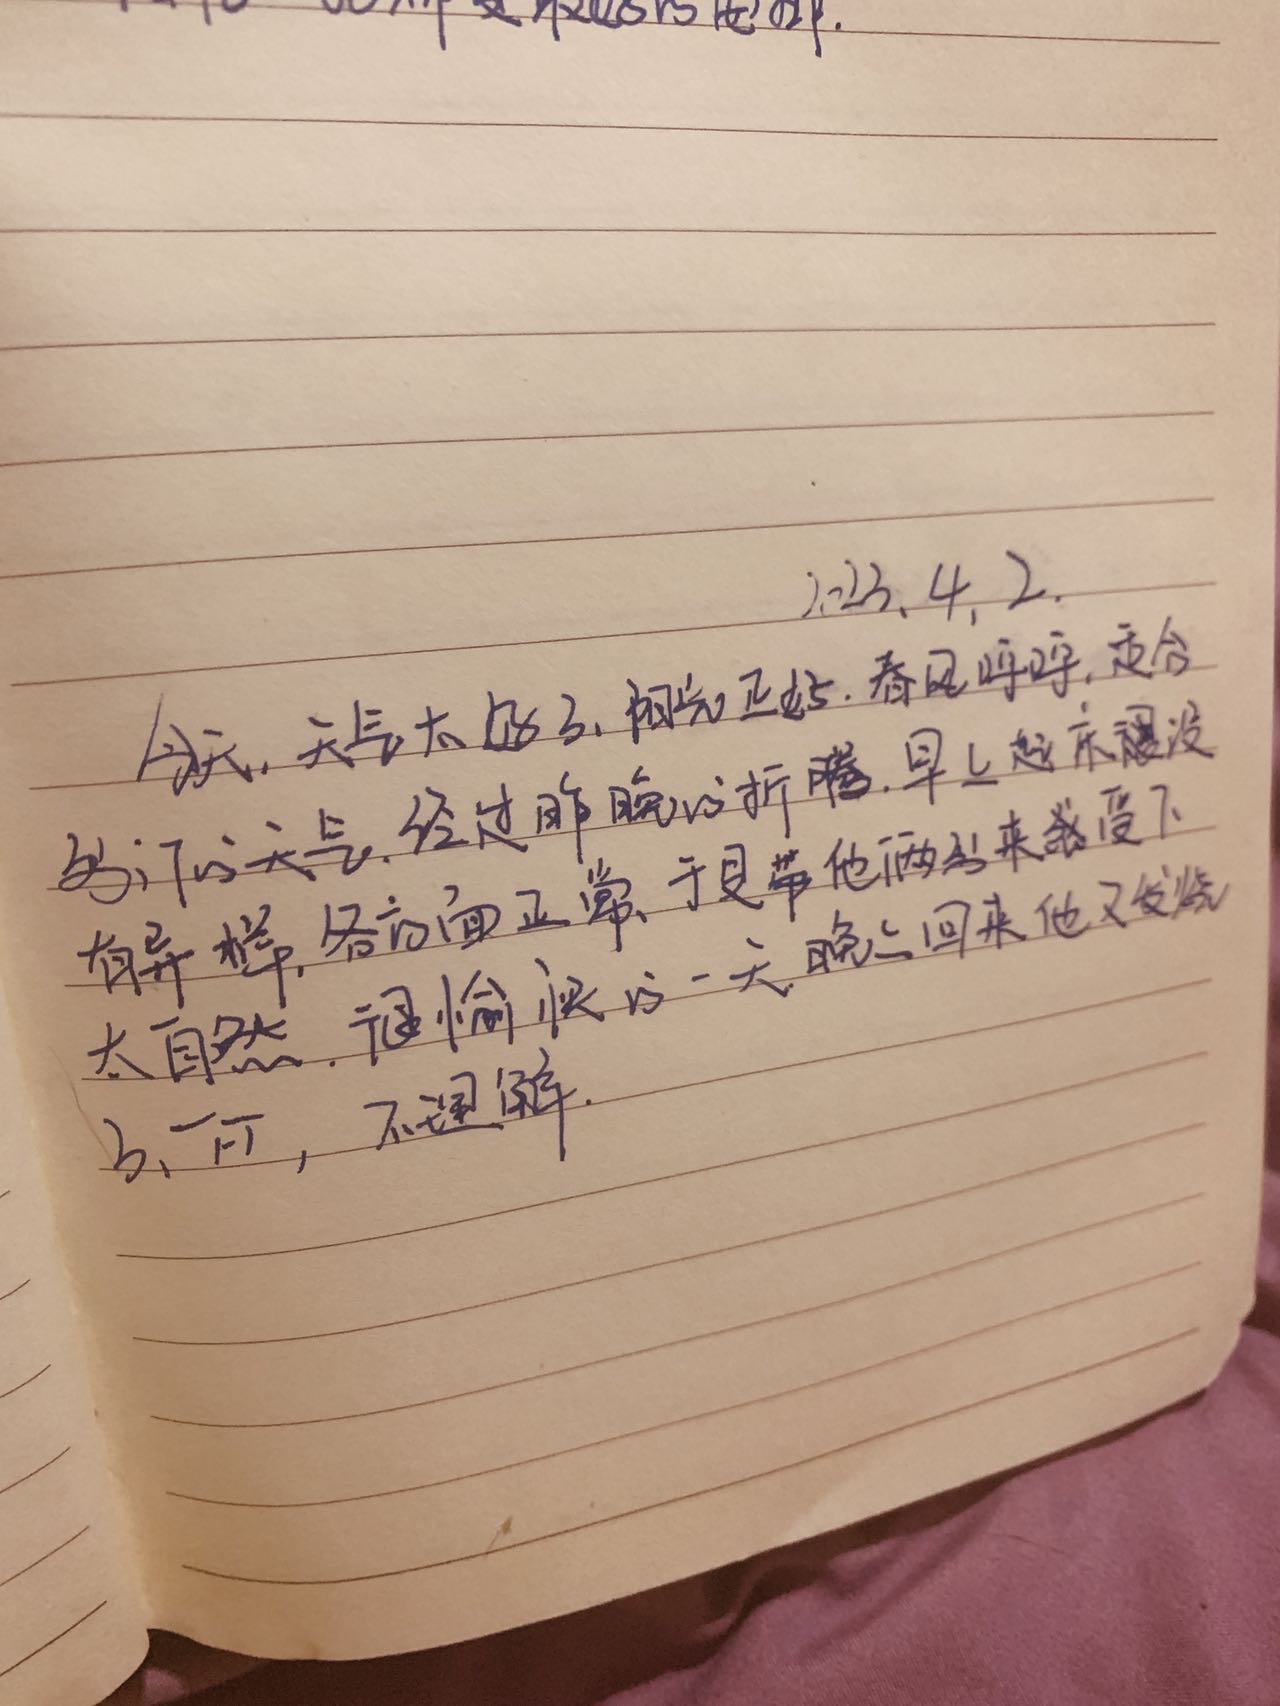 2023.4.2.
今天,天气太好了、阳光正好.春风呼呼,适合
出行的天气.经过昨晚的折腾.早上起床很没
有异样,各方面正常、于是带他俩出来感受下
大自然.很愉快的一天,晚上回来他又发烧
了、,不理解.